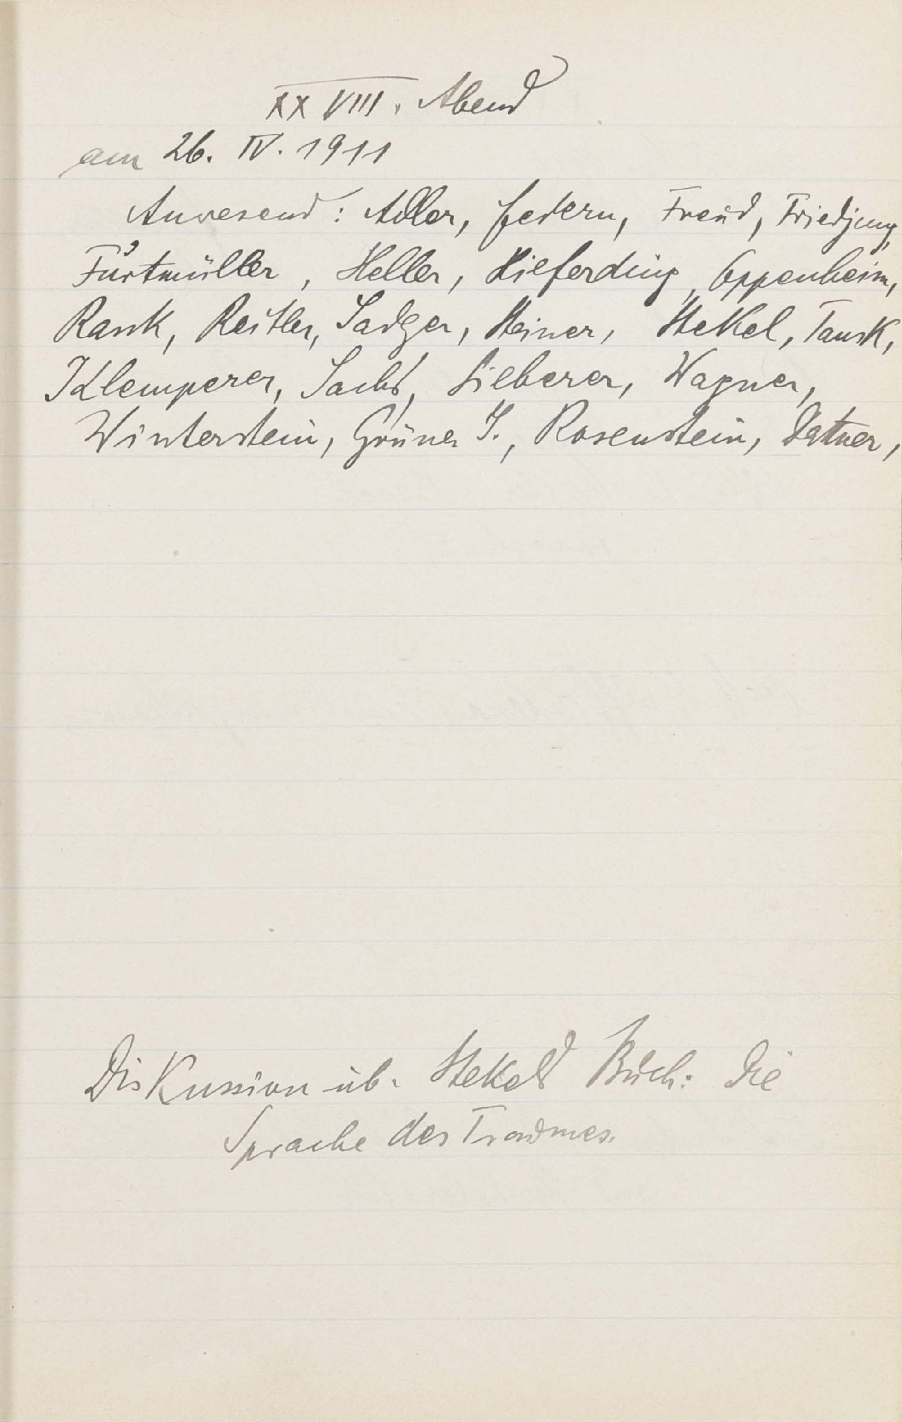 XXVIII. Abend
am 26. IV. 1911
Anwesend: Adler, Federn, Freud, Friedjung,
Furtmüller, Heller, Hilferding, Oppenheim,
Rank, Reitler, Sadger, Steiner, Stekel, Tausk,
Klemperer, Sachs, Silberer, Wagner,
Winterstein, Grüner G., Rosenstein, Dattner,
Diskussion üb. Stekels Buch: Die
Sprache des Traumes.